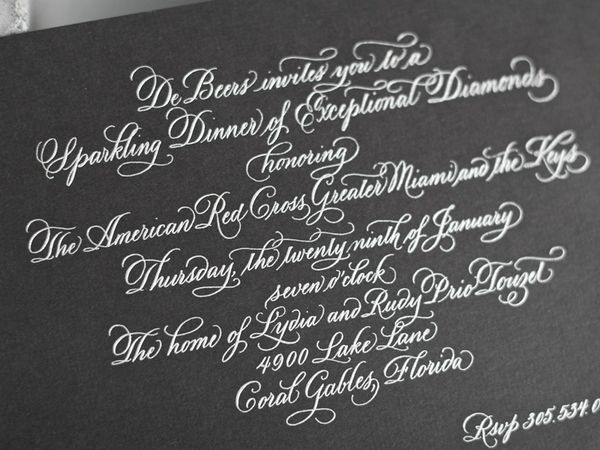 De Beers invites you to a
Sparkling Dinner of Exceptional Diamonds
honoring
The American Red Cross Greater Miami and the Keys
Thursday, the twenty ninth of January
seven o'clock
The home of Lydia and Rudy Prio Touzet
4900 Lake Lane
Coral Gables, Florida
Rsvp 305.534.0